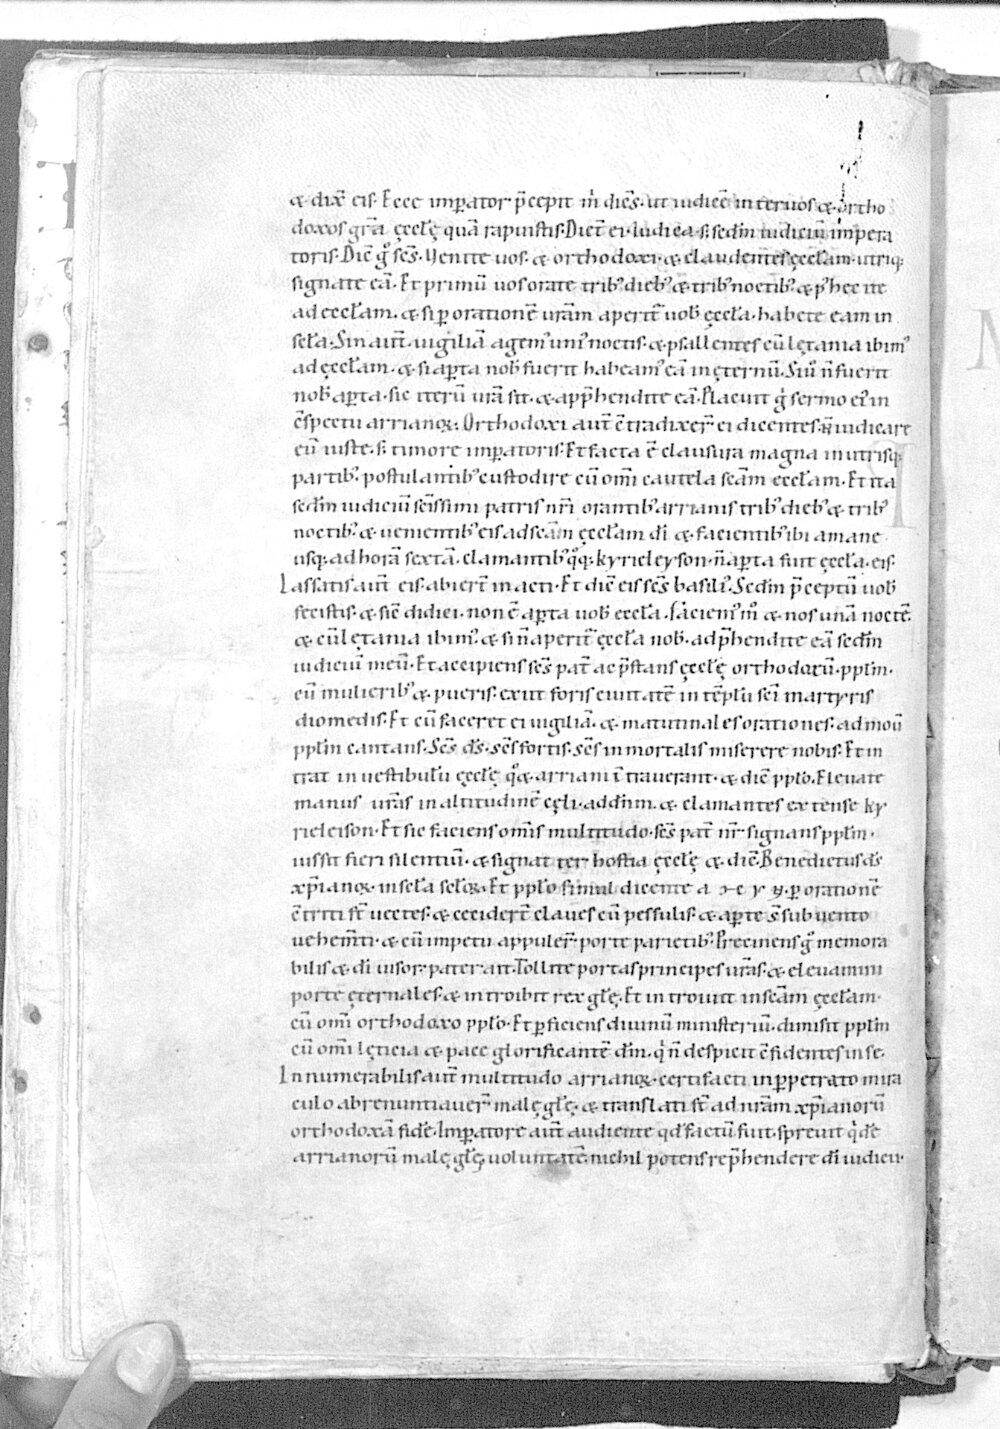 & dix̄ eis. Ecce imꝑator p̄cepit m̓ dicēs. ut iudicē inter uos & ortho
doxos gr̄a ęccl̄ę quā rapuistis. Dicēt ei. Iudica. s; scd̄m iudiciū impera
toris. Dic̄ gͦ sc̄s. Uenite uos. & orthodoxi. & claudentes ęccl̄am. utriq;
signate eā. Et primū uos orate trib; dieb; & trib; noctib; & p; hec ite
ad eccl̄am. & si ꝑ orationē ur̄am aperit̄ uob̄ ęccl̄a. habete eam in
scl̄a. Sin aut̄ uigiliā agem; uni; noctis. & psallentes cū lętania ibim;
ad ęccl̄am. & si aꝑta nob̄ fuerit habeam; eā in ęternū. Si u̓ n̄ fuerit
nob̄ aꝑta. sic iterū ur̄a sit. & app̄hendite eā. Placuit g̓ sermo ei; in
c̄spectu arrianoꝝ. Orthodoxi aut̄ c̄tradixer̄ ei dicentes. n̄ iudicare
cū iuste. s; timore imꝑatoris. Et facta ē clausura magna in utrisq;
partib; postulantib; custodire cū omī cautela sc̄am eccl̄am. Et ita
scd̄m iudiciū sc̄issimi patris nr̄i orantib; arrianis trib; dieb; & trib;
noctib; & uenientib; eis ad sc̄am ęccl̄am dī & facientib; ibi a mane
usq; ad horā sextā. clamantib; qͦq; kyrieleyson. n̄ aꝑta fuit ęccl̄a. eis.
Lassatis aut̄ eis. abiert̄ inacti. Et dic̄ eis sc̄s basili;. Scd̄m p̄ceptū uob̄
fecistis. & sic̄ didici. non ē aꝑta uob̄ eccl̄a. faciem; m̊ & nos unā noctē.
& cū lętania ibim; & si n̄ aperit̄ ęccl̄a nob̄. adp̄hendite eā scd̄m
iudiciū meū. Et accipiens sc̄s pat̄ ac p̄stans ęccl̄ę orthodoxū. ppl̄m.
cū mulierib; & pueris. exiit foris ciuitatē in tēplū sc̄i martyris
diomedis. Et cū faceret ei uigiliā. & matutinales orationes. ad mou
ppl̄m cantans. Sc̄s ds̄. sc̄s fortis. sc̄s inmortalis miserere nobis. Et in
trat in uestibulū ęccl̄ę qͦ & arriani ītrauerant. & dic̄ pplo. Eleuate
manus ur̄as in altitudinē cęli. ad dn̄m. & clamantes extense ky
rieleison. Et sic faciens om̄is multitudo. sc̄s pat̄ nr̄ signans ppl̄m.
iussit fieri silentiū. & signat ter hostia ęccl̄ę & dic̄. Benedictus ds̄
xp̄ianoꝝ. in scl̄a scl̄oꝝ. Et pplo simul dicente a ꝫ e y ꝩ. ꝑ orationē
c̄triti st̄ uectes. & ceciderē claues cū pessulis. & aperte st̄ sub uento
uehem̄ti. & cū impetu appuler̄ porte parietib;. Precinens gͦ memora
bilis & dī uisor. pater ait. Tollite portas principes ur̄as. & eleuamini
porte ęternales. & introibit rex gl̄ę. Et introiuit in sc̄am ęccl̄am.
cū omī orthodoxo pplo. Et ꝑficiens diuinū ministeriū. dimisit ppl̄m
cū omī lęticia & pace glorificantē dn̄m. q̓ n̄ despicit c̄fidentes in se.
Innumerabilis aut̄ multitudo arrianoꝝ. certi facti in ꝑpetrato mira
culo abrenuntiauer̄ malę gl̄ę. & translati st̄ ad ur̄am xp̄ianorū
orthodoxā fidē. Imꝑatore aut̄ audiente qd̄ factū fuit. spreuit q̓dē
arrianorū malę gl̄ę. uoluntatē. nichil potens rep̄hendere dī iudicii.